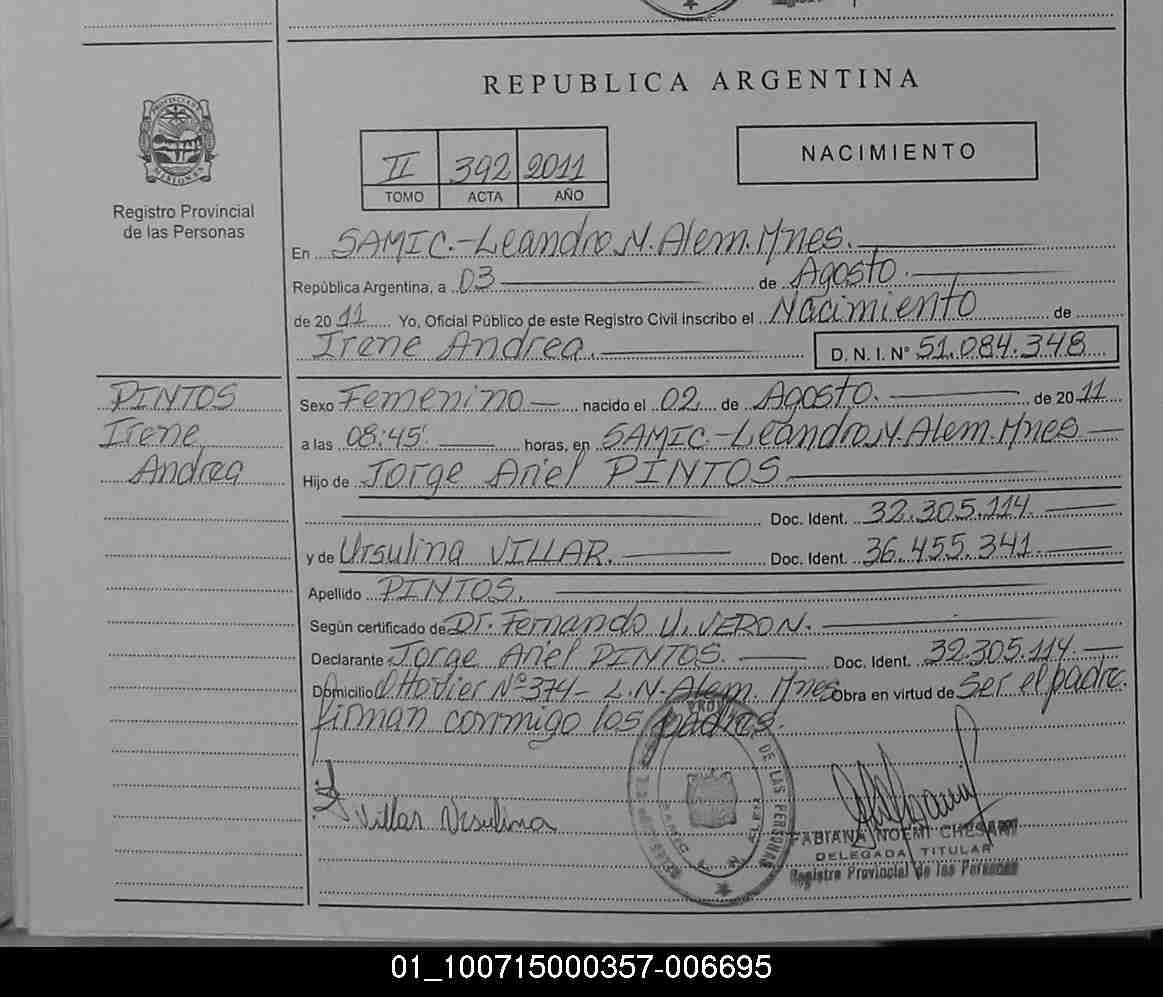 REPUBLICA ARGENTINA
PROVINCIA DE
MISIONES
Registro Provincial
de las Personas
II 392 2011
TOMO ACTA AÑO
NACIMIENTO
En SAMIC.-Leandro N. Alem. Mnes.
República Argentina, a 03 de Agosto
de 2011 Yo, Oficial Público de este Registro Civil inscribo el Nacimiento de
Irene Andrea. D. N. I. N° 51.084.348
PINTOS
Irene
Andrea
Sexo Femenino nacido el 02 de Agosto. de 2011
a las 08:45 horas, en SAMIC.-Leandro N. Alem. Mnes
Hijo de Jorge Ariel PINTOS
Doc. Ident. 32.305.114.
y de Ursulina VILLAR. Doc. Ident. 36.455.341.
Apellido PINTOS.
Según certificado de Dr. Fernando U. VERON.
Declarante Jorge Ariel PINTOS. Doc. Ident. 32.305.114.
Domicilio Nº374- L.N. Alem. Mnes Obra en virtud de Ser el padre.
firman conmigo los padres.
Villar Ursulina
DE LAS PERSONAS
FABIANA NOEMI CHESANI
DELEGADA TITULAR
Registro Provincial de las Personas
01_100715000357-006695